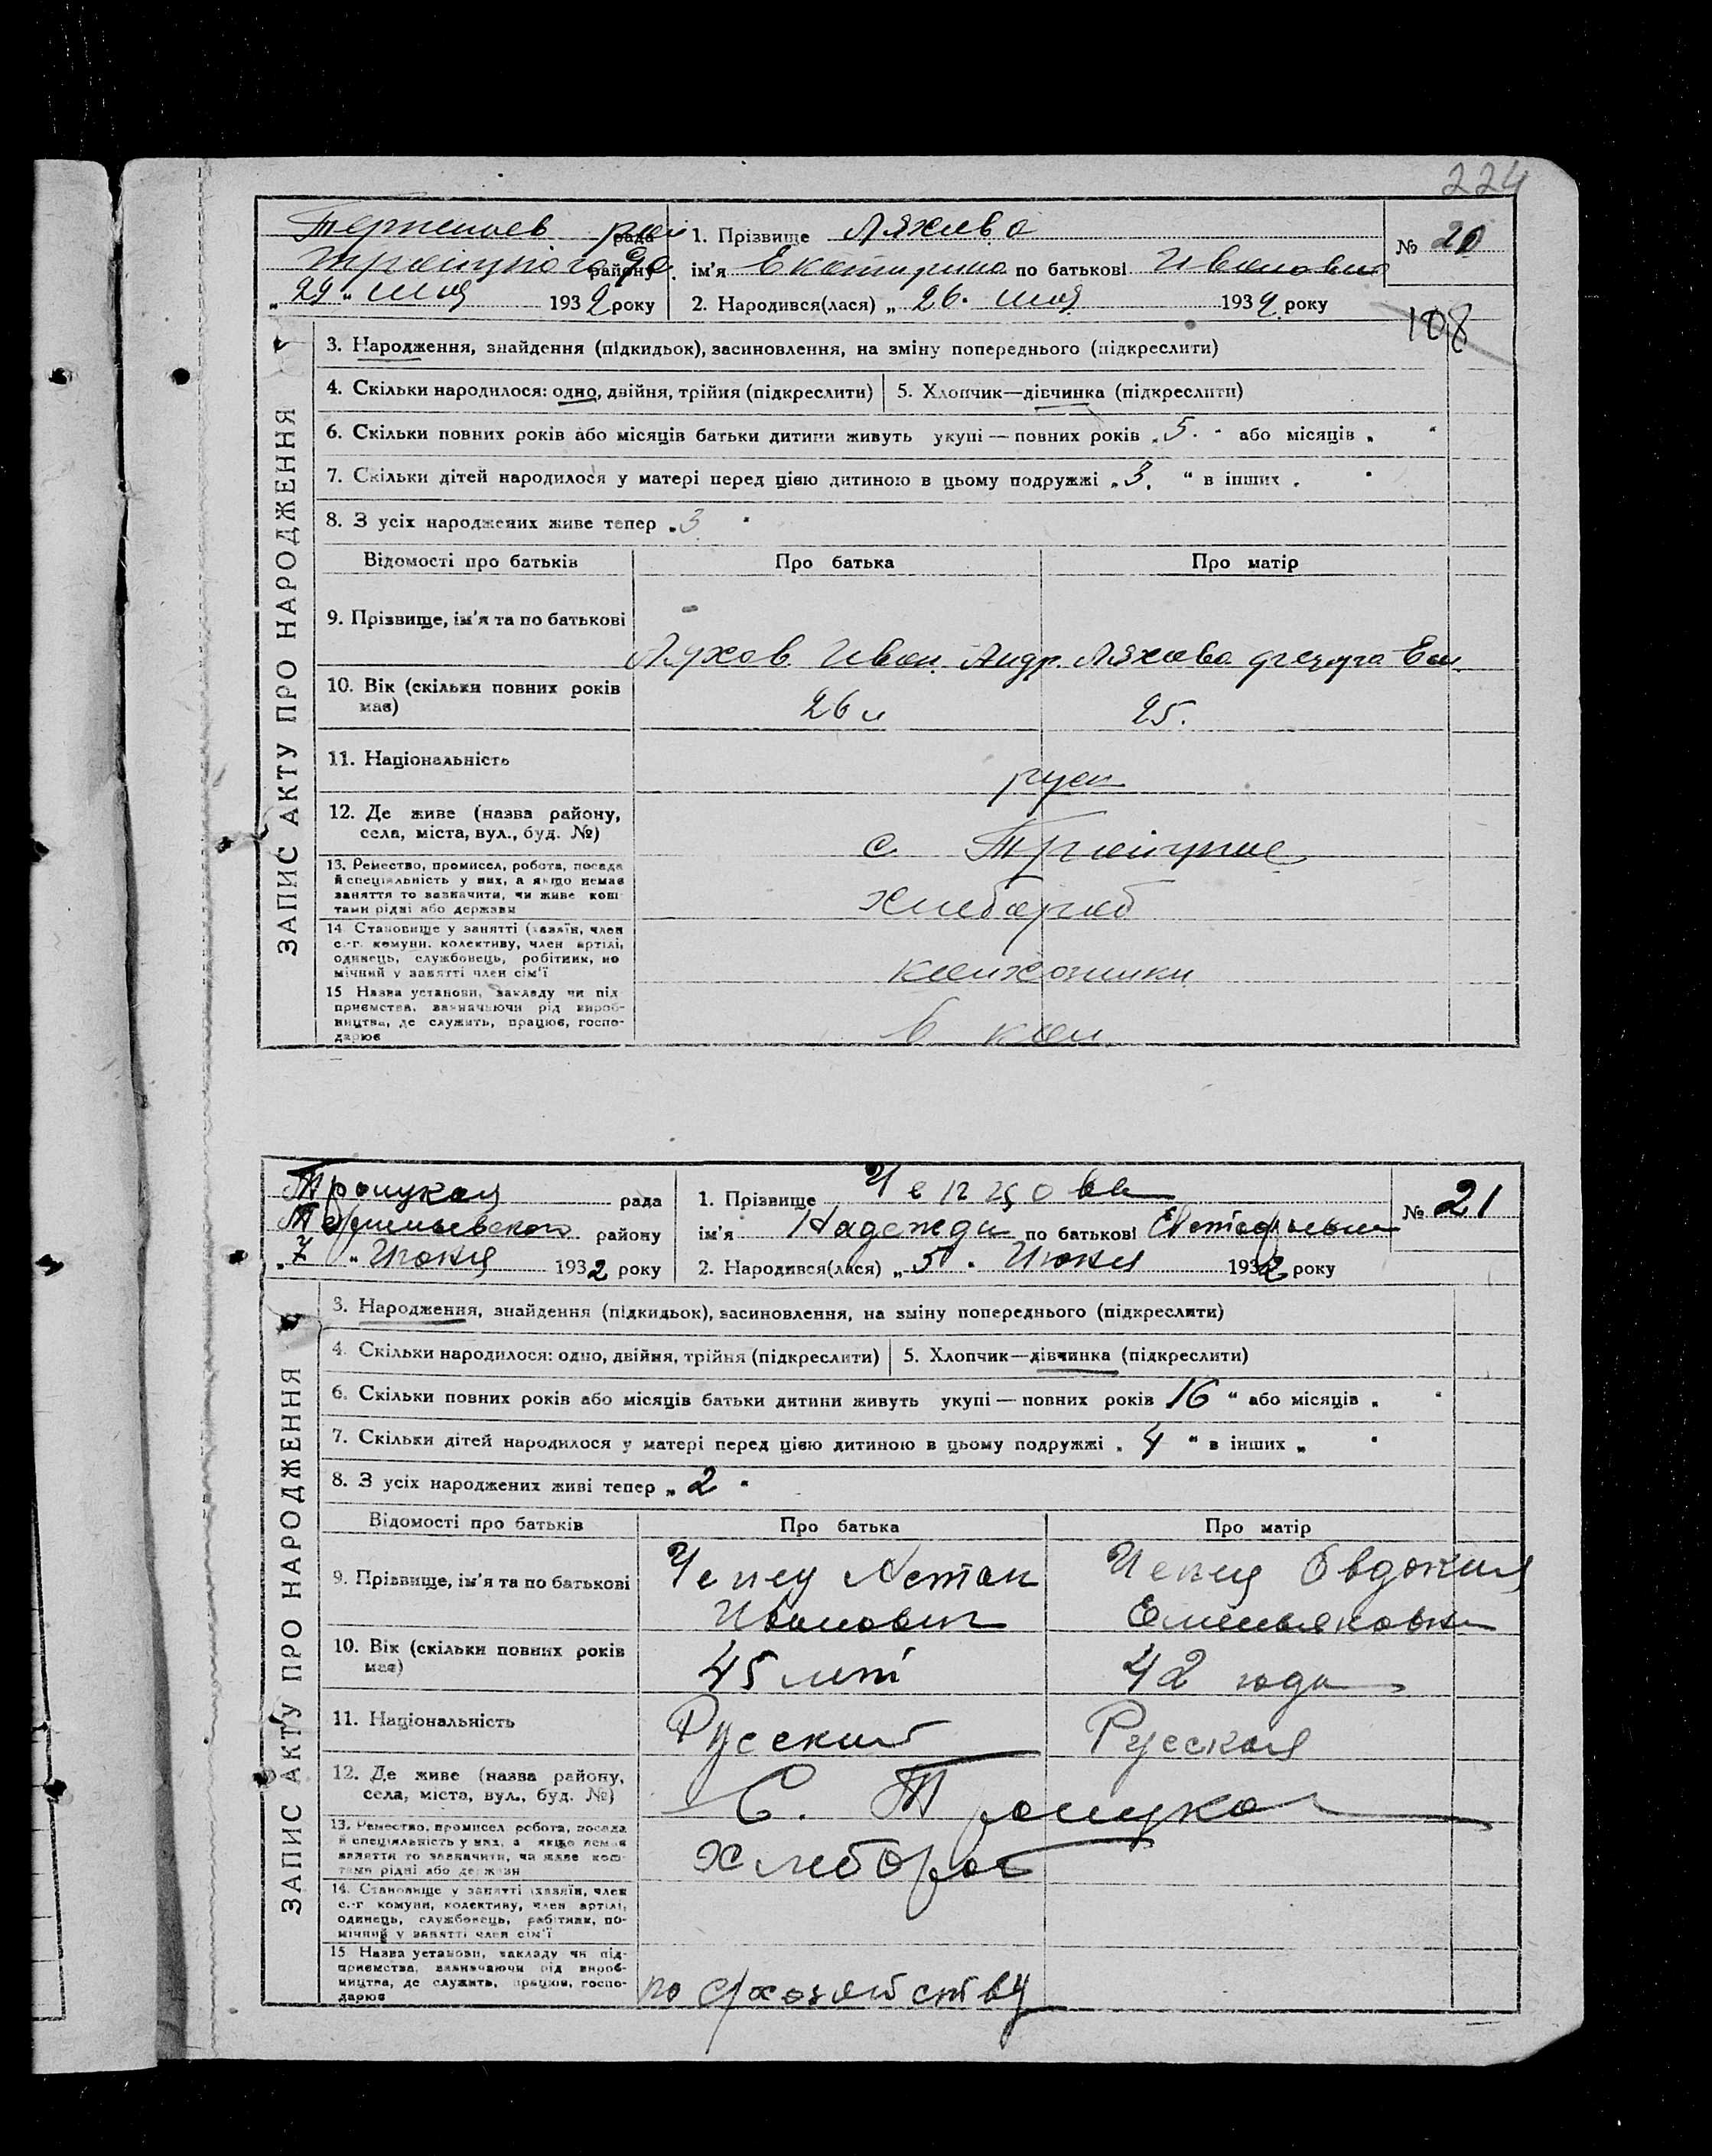 224
рада 1. Прізвище Ляхова № 20
району ім'я Екатирина по батькові Ивановна
„29“ мая 1932 року 2. Народився(лася) „26. мая 1932 року
108
ЗАПИС АКТУ ПРО НАРОДЖЕННЯ
3. Народження, знайдення (підкидьок), засиновлення, на зміну попереднього (підкреслити)
4. Скільки народилося: одно, двійня, трійня (підкреслити) 5. Хлопчик—дівчинка (підкреслити)
6. Скільки повних років або місяців батьки дитини живуть укупі — повних років „5.“ або місяців „ “
7. Скільки дітей народилося у матері перед цією дитиною в цьому подружжі „3.“ в інших „ “
8. З усіх народжених живе тепер „3“
Відомості про батьків Про батька Про матір
9. Прізвище, ім'я та по батькові
Ляхов Иван Андр. Ляхова
10. Вік (скільки повних років
має) 26 25.
11. Національність
руск
12. Де живе (назва району,
села, міста, вул., буд. №) с. Троицкое
13. Ремество, промисел, робота, посада
й спеціяльність у них, а якщо немає
заняття то зазначити, чи живе кош-
тами рідні або держави хлебороб
14 Становище у занятті (хазяїн, член
с.-г. комуни, колективу, член артілі,
одинець, службовець, робітник, по
мічний у занятті член сім'ї
15 Назва установи, закладу чи під
приємства, зазначаючи рід вироб-
ництва, де служить, працює, госпо-
дарює в кол.
Троицкая рада 1. Прізвище Чепцова № 21
району ім'я Надежда по батькові
„7“ Июня 1932 року 2. Народився(лася) „5“ Июня 1932 року
ЗАПИС АКТУ ПРО НАРОДЖЕННЯ
3. Народження, знайдення (підкидьок), засиновлення, на зміну попереднього (підкреслити)
4. Скільки народилося: одно, двійня, трійня (підкреслити) 5. Хлопчик—дівчинка (підкреслити)
6. Скільки повних років або місяців батьки дитини живуть укупі — повних років 16 “ або місяців „ “
7. Скільки дітей народилося у матері перед цією дитиною в цьому подружжі „4“ в інших „ “
8. З усіх народжених живі тепер „2“
Відомості про батьків Про батька Про матір
9. Прізвище, ім'я та по батькові Овдокия
Иванович Емельяновна
10. Вік (скільки повних років
має) 45 лет 42 года
11. Національність Русский Русская
12. Де живе (назва району,
села, міста, вул., буд. №) С. Троицкое
13. Ремество, промисел робота, посада
й спеціяльність у них, а якщо немає
заняття то зазначити, чи живе кош-
тами рідні або держави Хлебороб
14. Становище у занятті (хазяїн, член
с.-г комуни, колективу, член артілі,
одинець, службовець, робітник, по-
мічний у занятті член сім'ї
15 Назва установи, закладу чи під-
приємства, зазначаючи рід вироб-
ництва, де служить, працює, госпо-
дарює по с/хозяйству